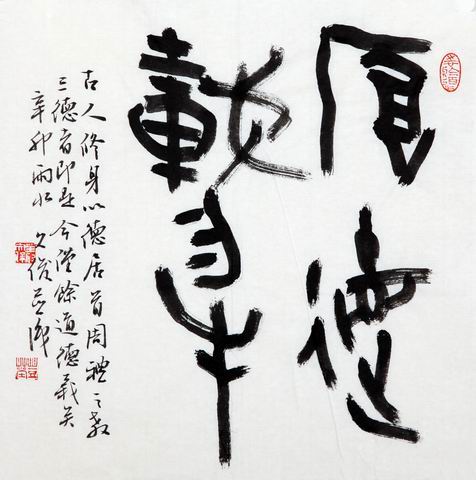 厚德
載物
古人修身以德居首周禮之教
三德者即是今僅餘道德義矣
辛卯雨水